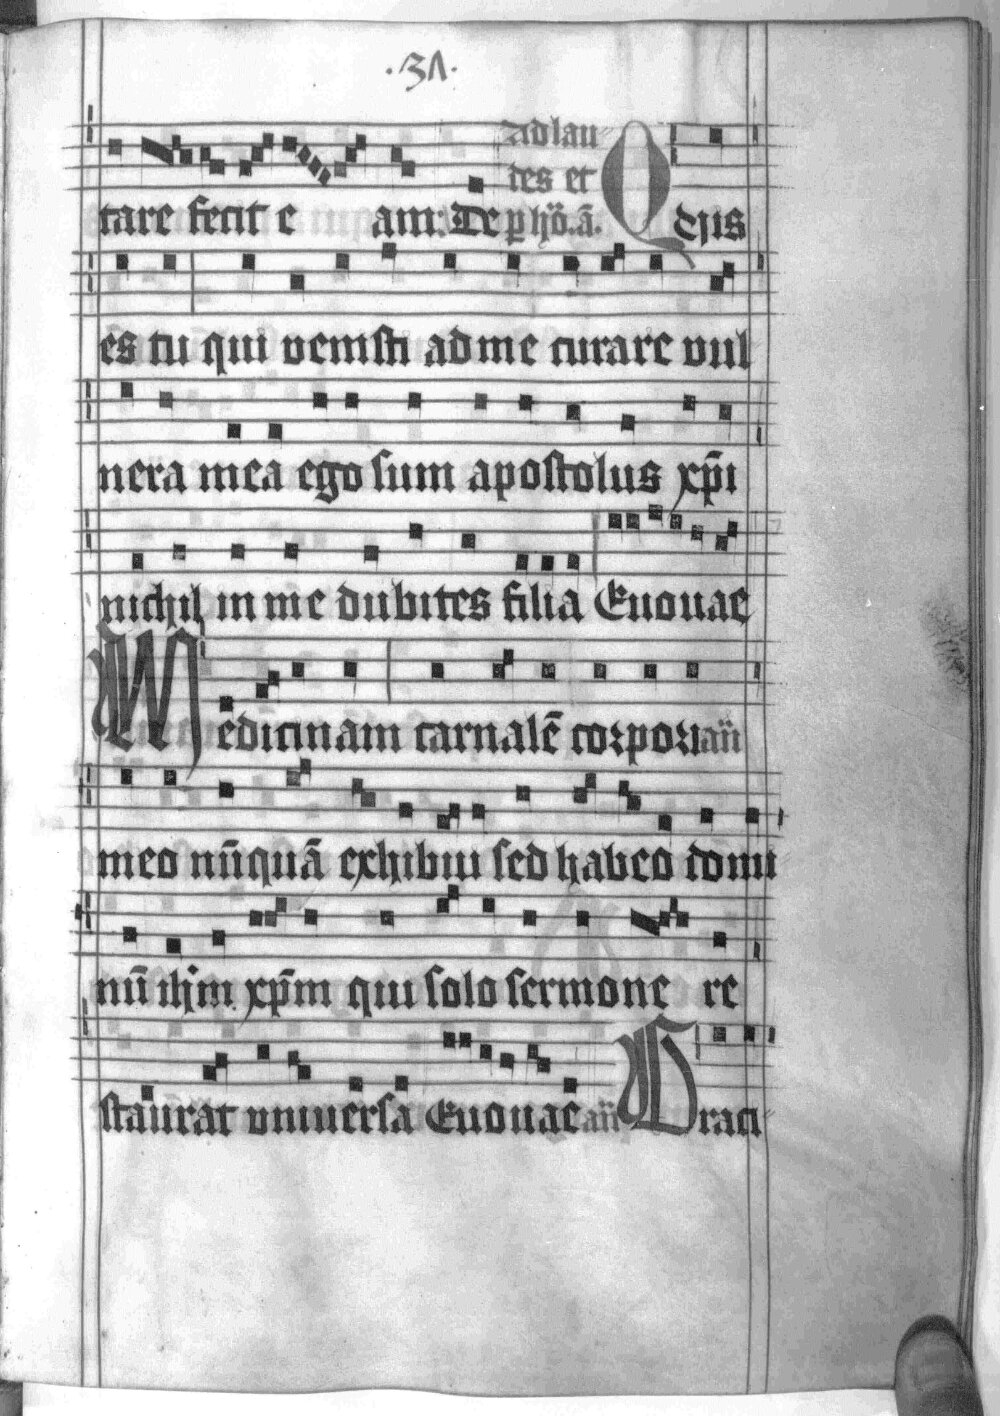 .31.
Ad lau
des et
tare fecit e am: De p hõ. ã. Q dïis
es tu qui venisti ad me curare vul
nera mea ego sum apostolus xp̄i
nichil in me dubites filia Euouae
Medicinam carnalē corpori an̄
meo nūquā exhibui sed habeo domi
nū ihm xp̄m qui solo sermone re
staurat vniuersa Euouae an̄ Graci